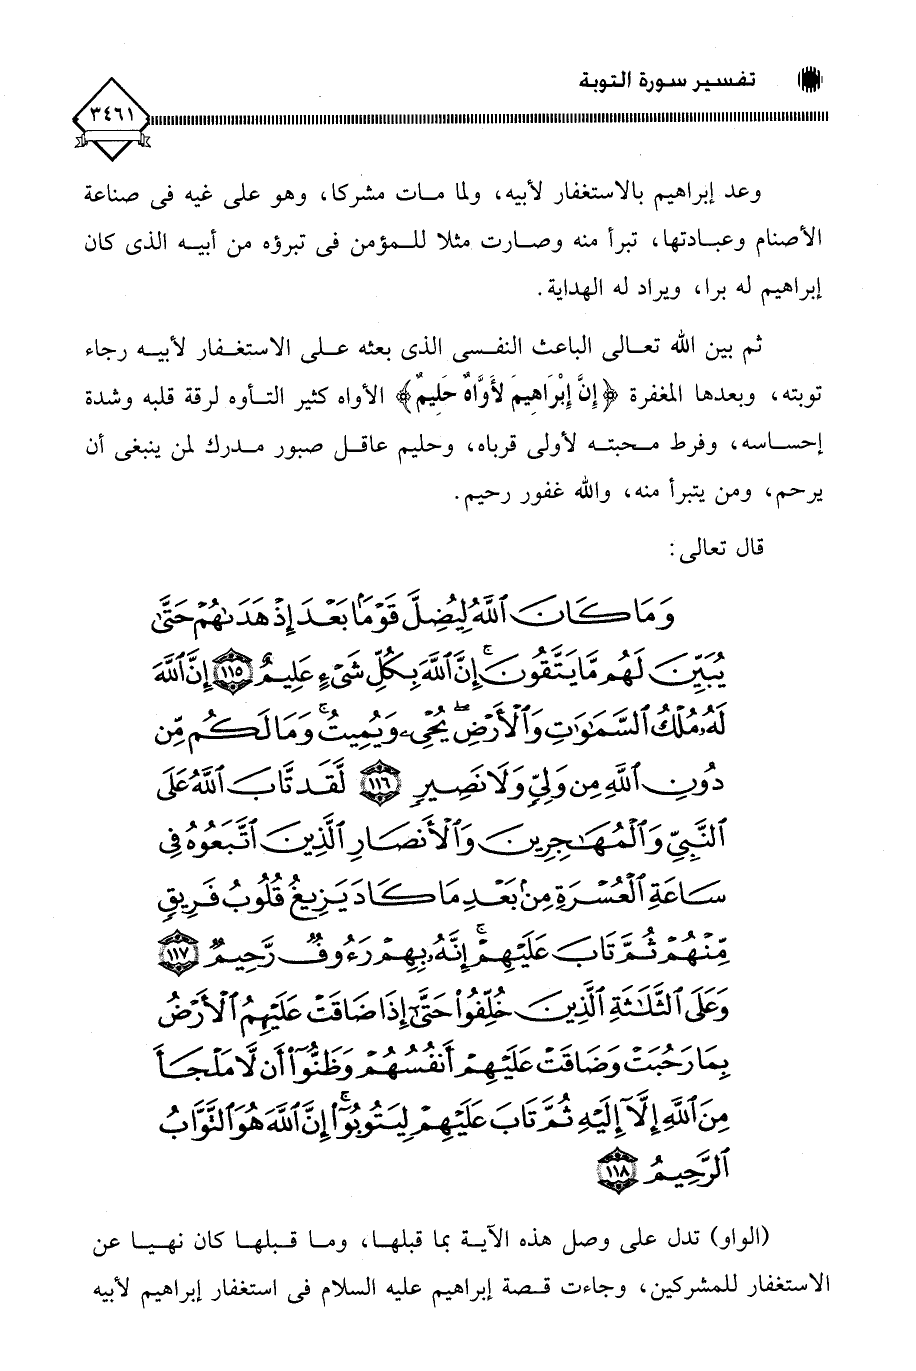 تفسير سورة التوبة
٣٤٦١
وعد إبراهيم بالاستغفار لأبيه، ولما مات مشركا، وهو على غيه فى صناعة
الأصنام وعبادتها، تبرأ منه وصارت مثلا للمؤمن فى تبرؤه من أبيه الذى كان
إبراهيم له برا، ويراد له الهداية.
ثم بين الله تعالى الباعث النفسى الذى بعثه على الاستغفار لأبيه رجاء
توبته، وبعدها المغفرة ﴿إِنَّ إِبْرَاهِيمَ لَأَوَّاهٌ حَلِيمٌ﴾ الأواه كثير التأوه لرقة قلبه وشدة
إحساسه، وفرط محبته لأولى قرباه، وحليم عاقل صبور مدرك لمن ينبغى أن
يرحم، ومن يتبرأ منه، والله غفور رحيم.
قال تعالى:
وَمَا كَانَ ٱللَّهُ لِيُضِلَّ قَوْمًۢا بَعْدَ إِذْ هَدَىٰهُمْ حَتَّىٰ
يُبَيِّنَ لَهُم مَّا يَتَّقُونَ ۚ إِنَّ ٱللَّهَ بِكُلِّ شَىْءٍ عَلِيمٌ ١١٥ إِنَّ ٱللَّهَ
لَهُۥ مُلْكُ ٱلسَّمَٰوَٰتِ وَٱلْأَرْضِ ۖ يُحْىِۦ وَيُمِيتُ ۚ وَمَا لَكُم مِّن
دُونِ ٱللَّهِ مِن وَلِىٍّ وَلَا نَصِيرٍ ١١٦ لَّقَد تَّابَ ٱللَّهُ عَلَى
ٱلنَّبِىِّ وَٱلْمُهَٰجِرِينَ وَٱلْأَنصَارِ ٱلَّذِينَ ٱتَّبَعُوهُ فِى
سَاعَةِ ٱلْعُسْرَةِ مِنۢ بَعْدِ مَا كَادَ يَزِيغُ قُلُوبُ فَرِيقٍ
مِّنْهُمْ ثُمَّ تَابَ عَلَيْهِمْ ۚ إِنَّهُۥ بِهِمْ رَءُوفٌ رَّحِيمٌ ١١٧
وَعَلَى ٱلثَّلَٰثَةِ ٱلَّذِينَ خُلِّفُوا۟ حَتَّىٰٓ إِذَا ضَاقَتْ عَلَيْهِمُ ٱلْأَرْضُ
بِمَا رَحُبَتْ وَضَاقَتْ عَلَيْهِمْ أَنفُسُهُمْ وَظَنُّوٓا۟ أَن لَّا مَلْجَأَ
مِنَ ٱللَّهِ إِلَّآ إِلَيْهِ ثُمَّ تَابَ عَلَيْهِمْ لِيَتُوبُوٓا۟ ۚ إِنَّ ٱللَّهَ هُوَ ٱلتَّوَّابُ
ٱلرَّحِيمُ ١١٨
(الواو) تدل على وصل هذه الآية بما قبلها، وما قبلها كان نهيا عن
الاستغفار للمشركين، وجاءت قصة إبراهيم عليه السلام فى استغفار إبراهيم لأبيه